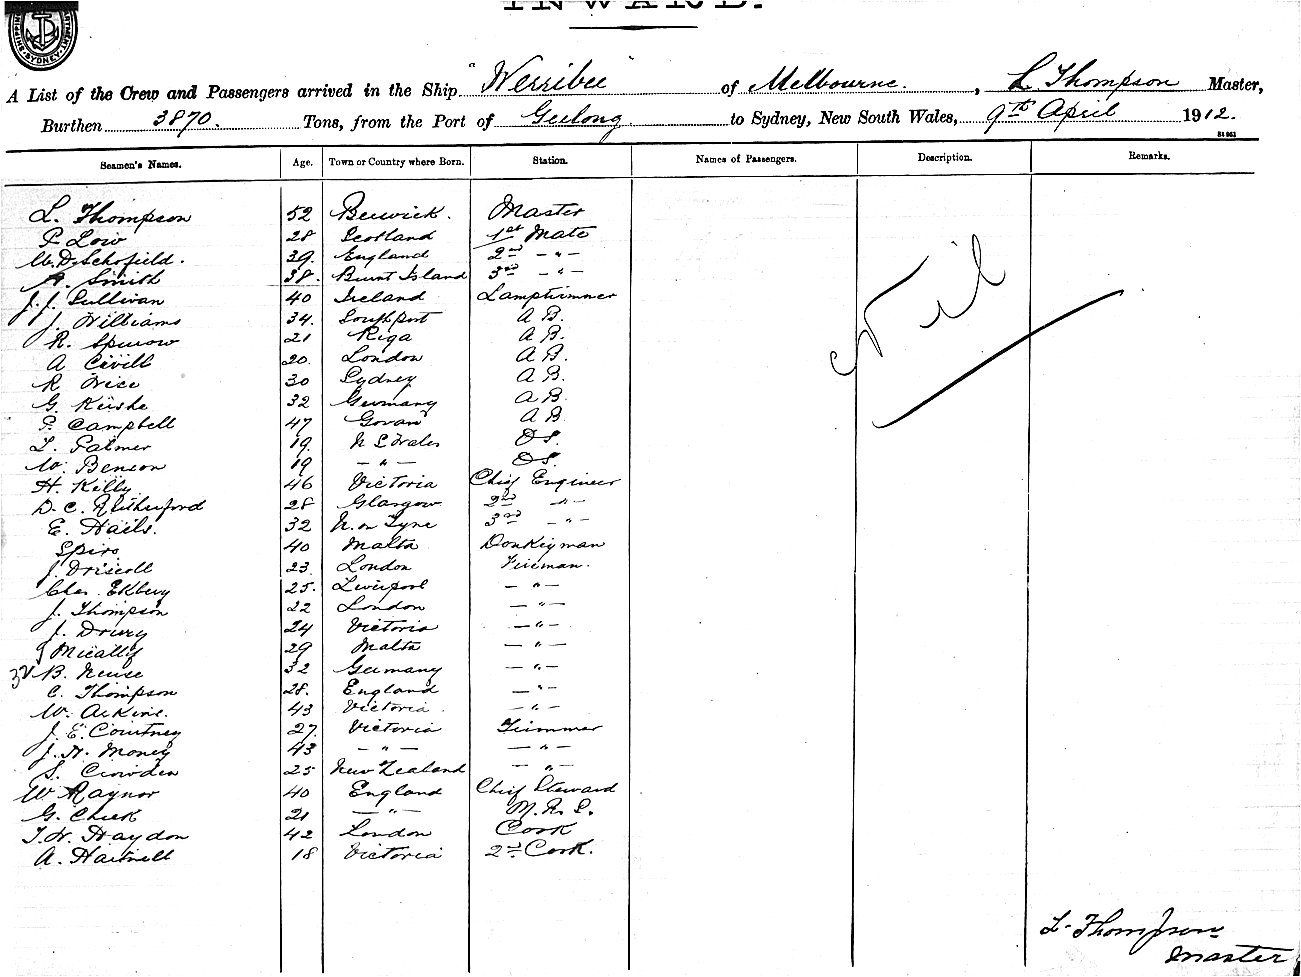 INWARD.
A List of the Crew and Passengers arrived in the Ship "Werribee of Melbourne. , L. Thompson Master,
Burthen 3870. Tons, from the Port of Geelong to Sydney, New South Wales, 9th April 1912.
Seamen's Names. Age. Town or Country where Born. Station. Names of Passengers. Description. Remarks.
L. Thompson 52 Berwick. Master
P. Low 28 Scotland 1st Mate
W. D. Schofield. 39. England 2nd - " -
A. Smith 38. Burnt Island 3rd - " -
J. J. Sullivan 40 Ireland Lamptrimmer
J. Williams 34. Southport A B.
R. Spurow 21 Riga A B.
A Civill 20. London A B.
R. Wice 30 Sydney A B.
G. Keishe 32 Germany A B.
P. Campbell 47 Govan A B
L. Palmer 19. N S Wales OS.
W. Benson 19 - " - OS.
H. Killy 46 Victoria Chief Engineer
D. C. Rutherford 28 Glasgow 2nd - " -
E. Hails. 32 N. on Tyne 3rd - " -
Spiro 40 Malta Donkeyman
J. Driscoll 23. London Fireman.
Chas. Ekberg 25. Liverpool - " -
J. Thompson 22 London - " -
J. Drury 24 Victoria - " -
J Micallef 29 Malta - " -
B. Neuse 32 Germany - " -
C. Thompson 28. England - " -
W. 43 Victoria. - " -
J. E. Courtney 27. Victoria Trimmer
J. H. Money 43 - " - - " -
S. Crowden 25 New Zealand - " -
W Raynor 40 England Chief Steward
G. Cheek 21 - " - M. R. S.
T. W. Haydon 42 London Cook
A. Hartnell 18 Victoria 2nd Cook.
Nil
L. Thompson
Master